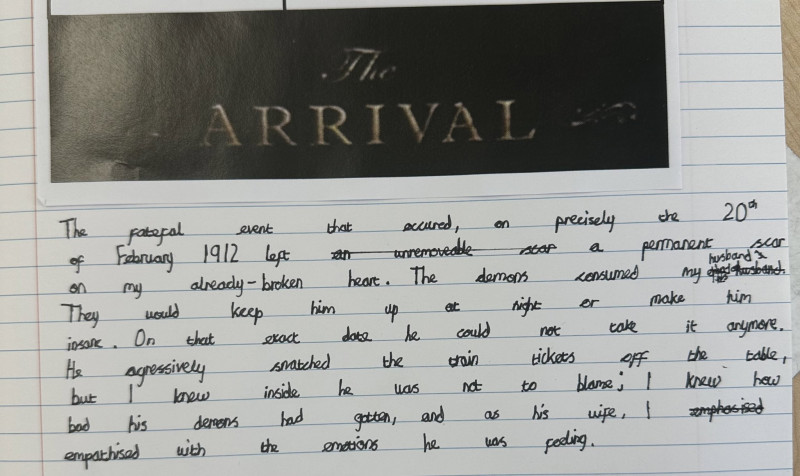 The
ARRIVAL
The fatefal event that occured, on precisely the 20th
of February 1912 left an unremoveable scar a permanent scar
on my already-broken heart. The demons consumed my husband's
They would keep him up at night or make him
insane. On that exact date he could not take it anymore.
He agressively snatched the train tickets off the table,
but I knew inside he was not to blame; I knew how
bad his demons had gotten, and as his wife, I emphasised
empathised with the emotions he was feeling.